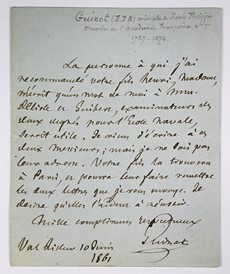 Guizot (F.P.G.) ministre de Louis Philippe
membre de l'Académie Française,
1787-1874.
La personne à qui j'ai
recommandé votre fils Henri, Madame,
m'écrit qu'un mot de moi à Mm.
et examinateurs
pour l'École Navale,
serait utile. Je viens d'écrire à ces
deux Messieurs; mais je ne sais pas
leur adresse. Votre fils la trouvera
à Paris, et pourra leur faire remettre
les deux lettres que je vous envoye. Je
désire qu'elles l'aident à réussir.
Mille compliments respectueux
Guizot
Val Richer 10 Juin
1861